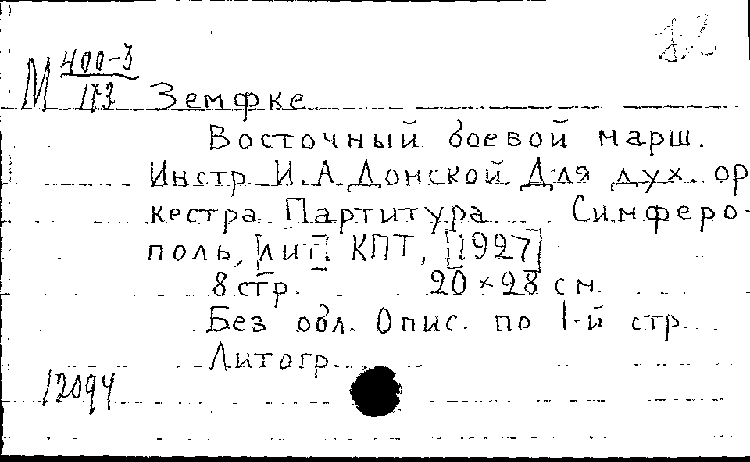 М 400-3
173
Земфке
Восточный боевой марш.
Инстр. И.А. Донской Для дух. ор
кестра. Партитура. Симферо-
поль, [лит. КПТ, [1927]
8 стр. 20 × 28 см.
Без обл. Опис. по 1-й стр.
Литогр.
12094